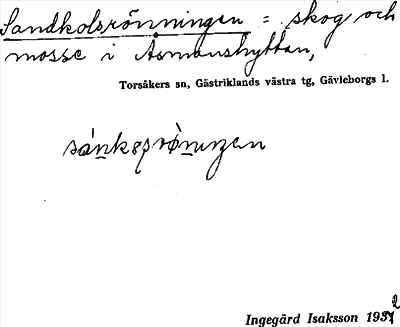 Sandkolsrönningen = skog och
mosse i Åsmanshyttan,
Torsåkers sn, Gästriklands västra tg, Gävleborgs l.
Ingegärd Isaksson 1932